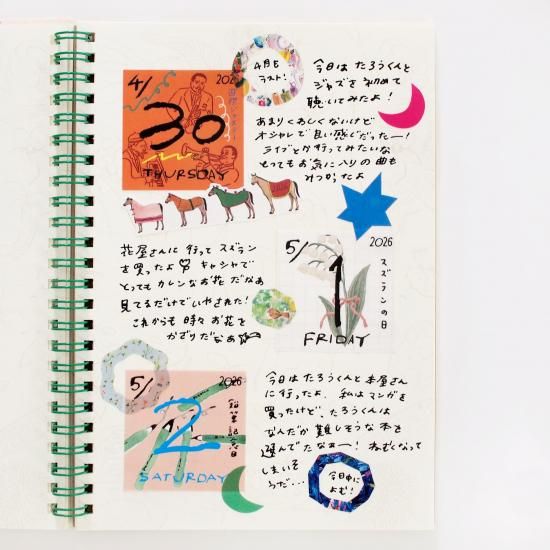 4/
30
2026
THURSDAY
4月も
ラスト!
今日は たろうくんと
ジャズを 初めて
聴いてみたよ!
あまりくわしくないけど
オシャレで 良い感じだったー!
ライブとか行ってみたいな
とってもお気に入りの曲も
みつかったよ
花屋さんに 行って スズラン
を買ったよ♡ キャシャで
とっても カレンなお花 だなあ
見てるだけでいやされた!
これからも 時々 お花を
かざりだなあ
5/
1
2026
スズランの日
FRIDAY
5/
2
2026
鉛筆記念日
SATURDAY
今日は たろうくんと 本屋さん
に行ったよ. 私はマンガを
買ったけど、たろうくんは
なんだか 難しそうな 本を
選んでたなぁー! ねむくなって
しまいそ
うだ...
今日中に
よむ!